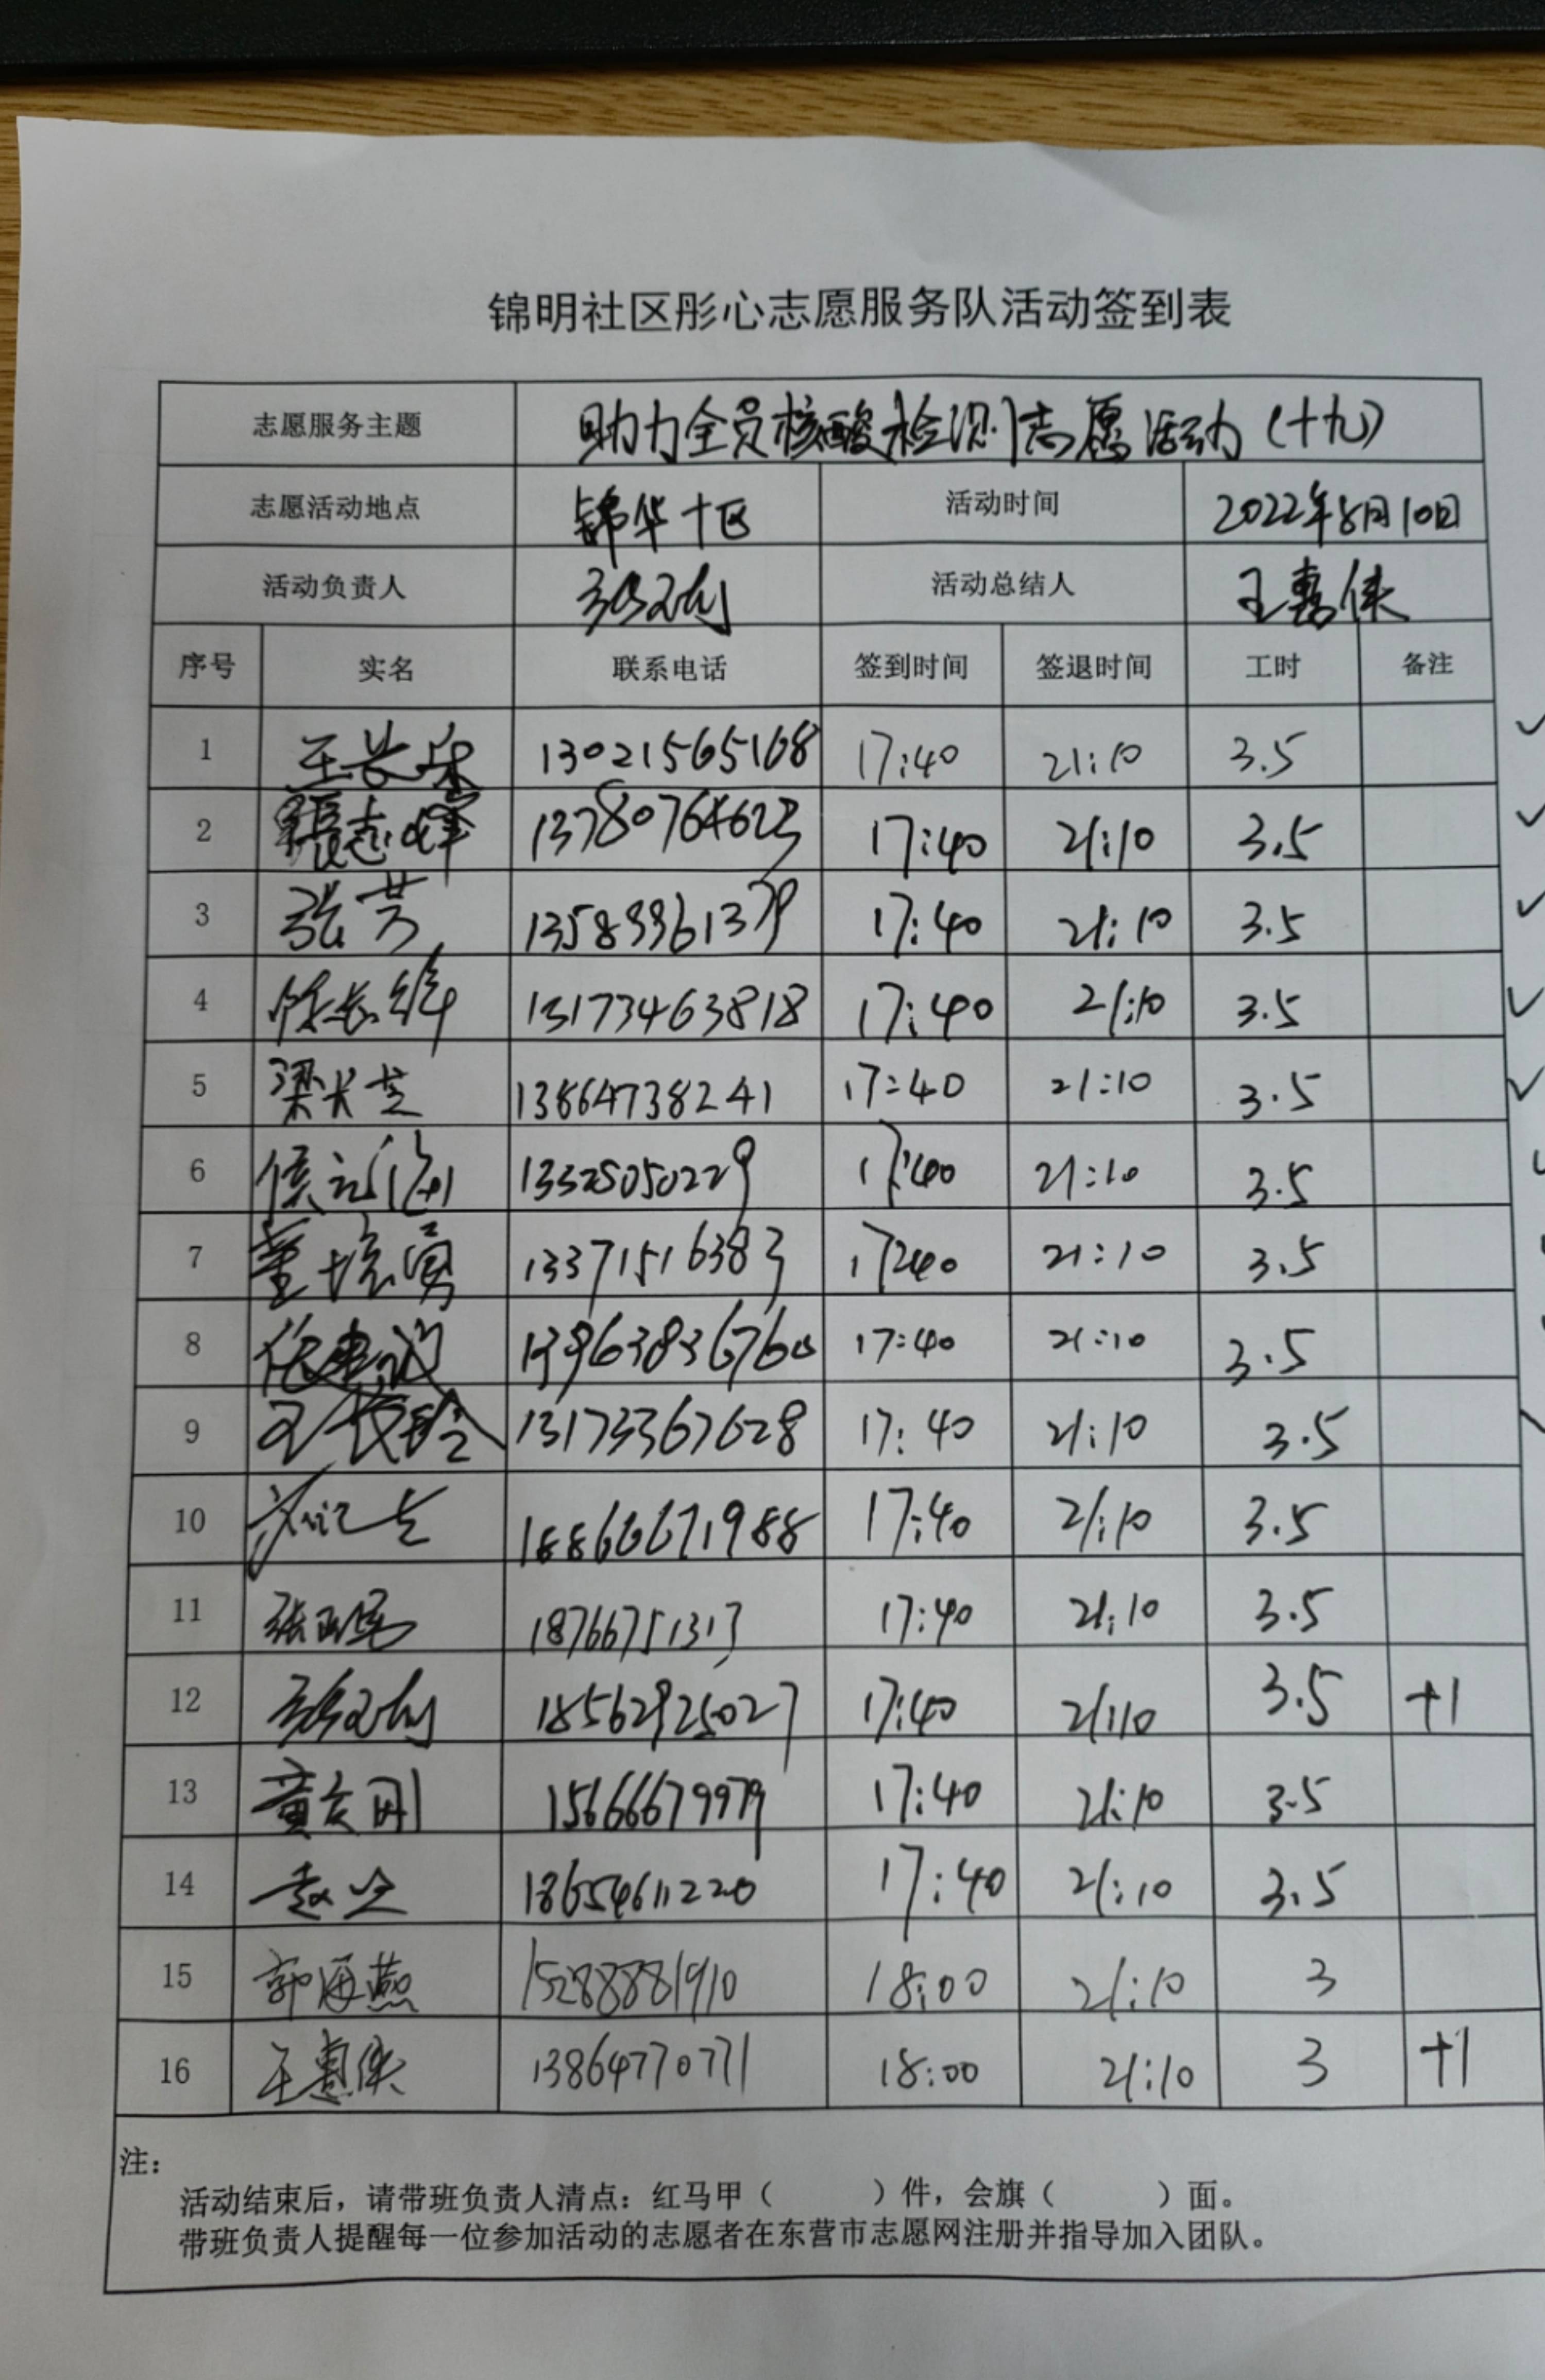 锦明社区彤心志愿服务队活动签到表
志愿服务主题 助力全员核酸检测志愿活动(十九)
志愿活动地点 锦华十区 活动时间 2022年8月10日
活动负责人 活动总结人 王惠侠
序号 实名 联系电话 签到时间 签退时间 工时 备注
1 13021565168 17:40 21:10 3.5
2 張志峰 13780764623 17:40 21:10 3.5
3 张芳 13589961379 17:40 21:10 3.5
4 13173463818 17:40 21:10 3.5
5 梁长芝 13864738241 17:40 21:10 3.5
6 13325050229 17:40 21:10 3.5
7 董培勇 13371516383 17:40 21:10 3.5
8 13963836760 17:40 21:10 3.5
9 13173367628 17:40 21:10 3.5
10 18866671988 17:40 21:10 3.5
11 18766751313 17:40 21:10 3.5
12 18562925027 17:40 21:10 3.5 +1
13 黄友刚 15666679979 17:40 21:10 3.5
14 18654611220 17:40 21:10 3.5
15 郭海燕 15288881910 18:00 21:10 3
16 王惠侠 13864770771 18:00 21:10 3 +1
注：
活动结束后，请带班负责人清点：红马甲（ ）件，会旗（ ）面。
带班负责人提醒每一位参加活动的志愿者在东营市志愿网注册并指导加入团队。